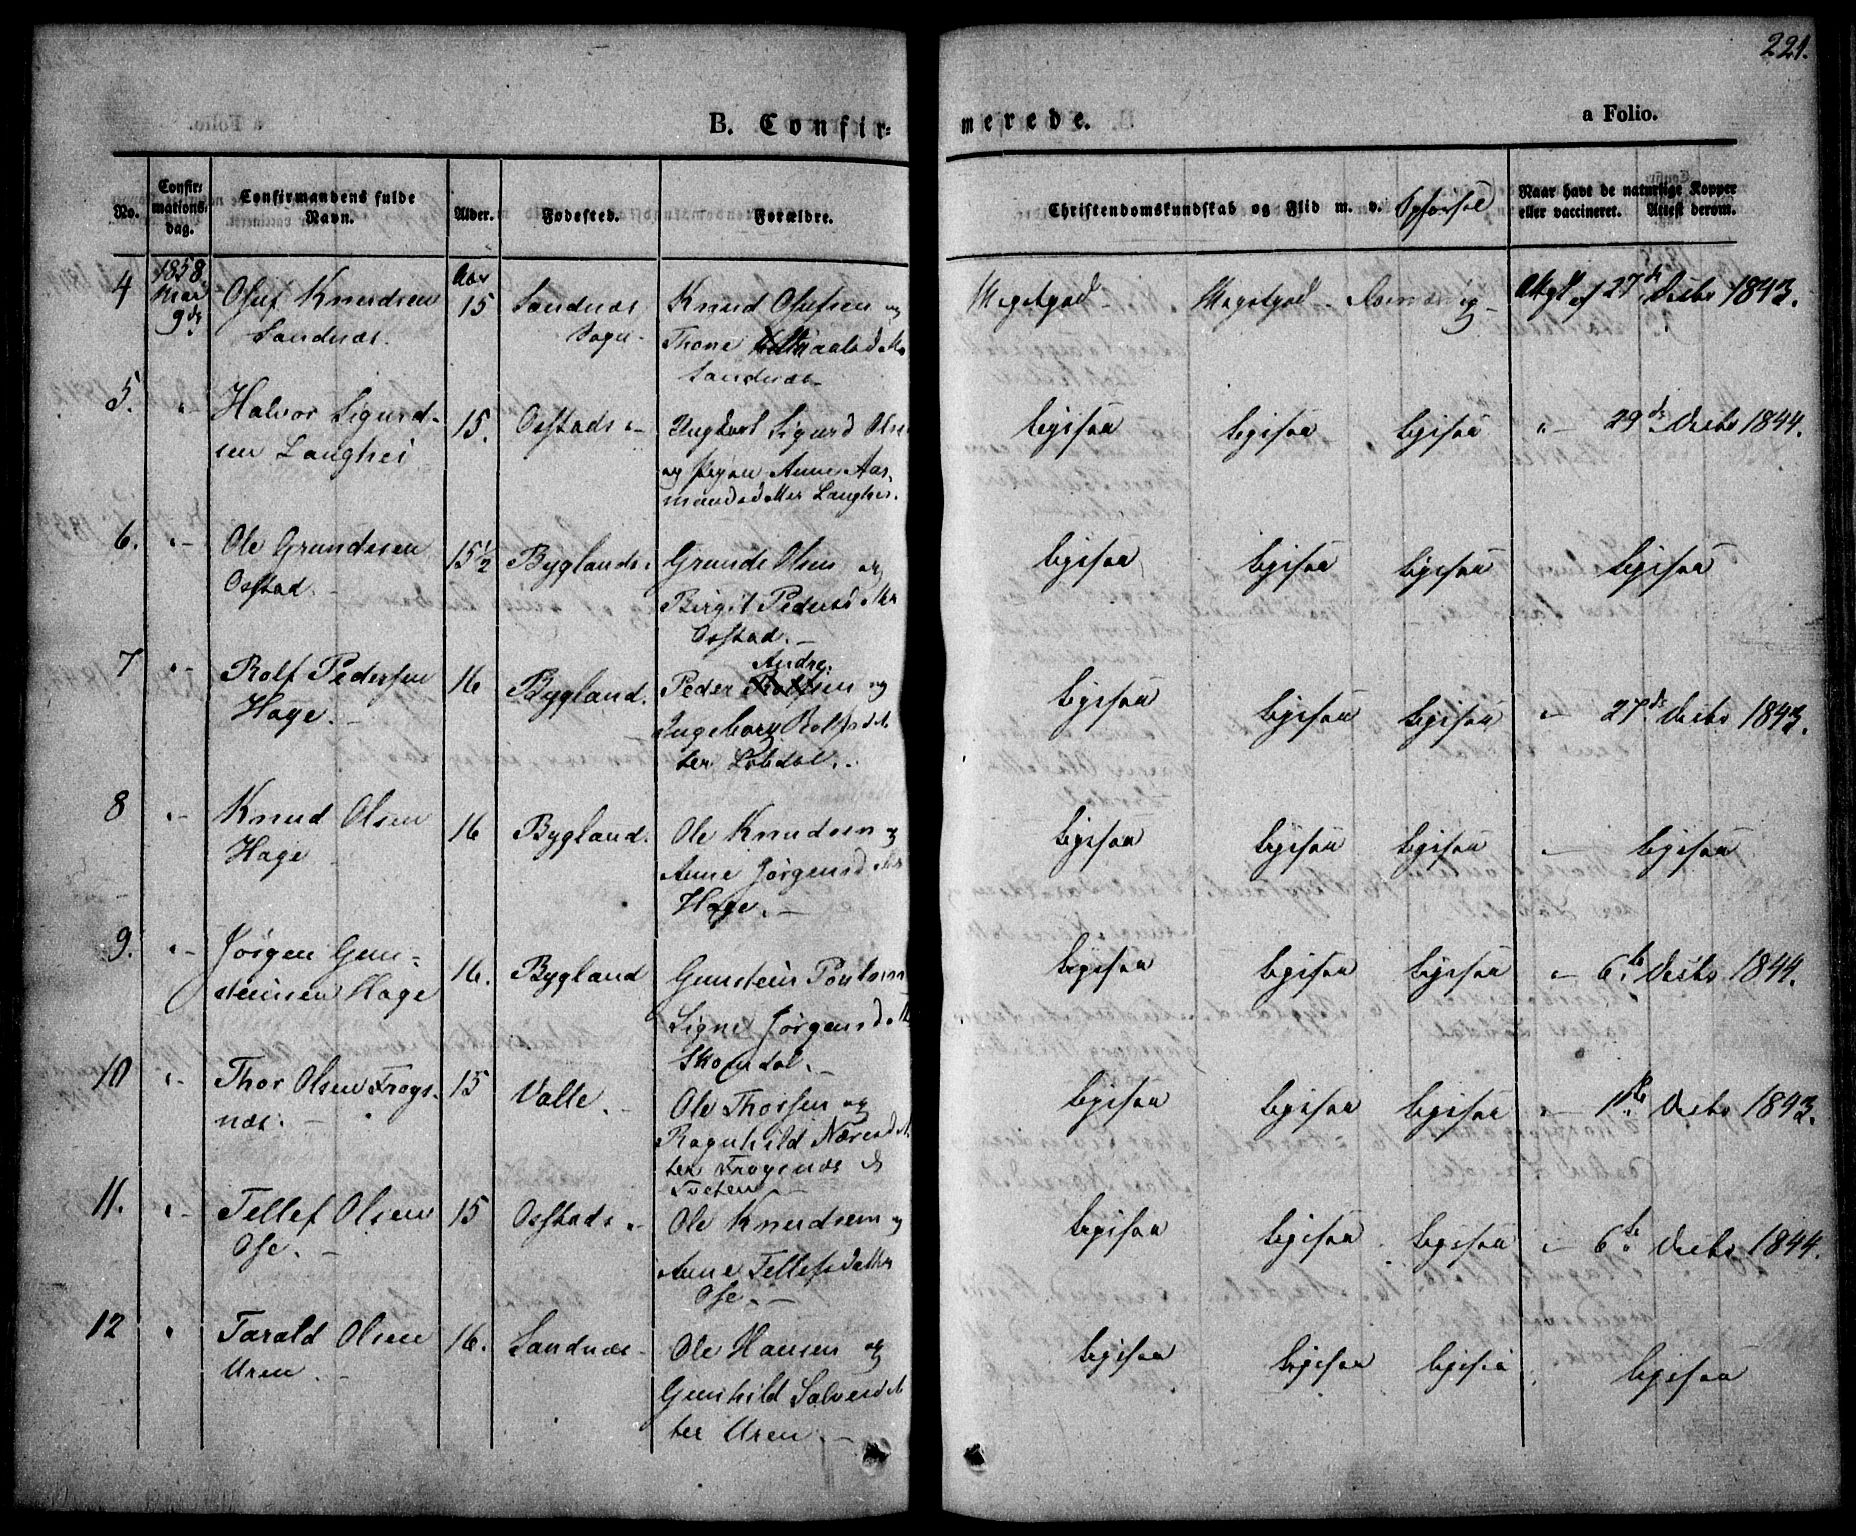 221.
B. Confir-
merede.
a Folio.
No.
Confir-
mations-
dag.
Confirmandens fulde
Navn.
Alder.
Fødested.
Forældre.
Christendomskundskab og Flid m. v.
Naar havt de naturlige Kopper
eller vaccineret. Attest derom.
4
1858
Mai
9de
Oluf Knudsen
Sandnæs.
Aar
15
Sandnæs
Sogn
Knud Olufsen og
Thone
Sandnæs
Megetgod
Megetgod
27de Decbr 1843.
5.
Halvor Sigurd-
sen Langhei
15.
Osstads
Ungkarl Sigurd Olsen
og Pigen Anne Aas-
mundsdatter Langhei.
ligesaa
ligesaa
ligesaa
29de Decbr 1844.
6.
Ole Grundesen
Osstad.
15½
Byglands
Grunde Olsen og
Birgit Pedersdatter
Osstad.
ligesaa
ligesaa
ligesaa
ligesaa
7
Rolf Pedersen
Hage.
16
Bygland.
Andre-
Peder Rolfsen og
Ingeborg Rolfsdat-
ter Lobdal.
ligesaa
ligesaa
ligesaa
27de Decbr 1843.
8
Knud Olsen
Hage
16
Bygland.
Ole Knudsen og
Anne Jørgensdatter
Hage.
ligesaa
ligesaa
ligesaa
ligesaa
9.
Jørgen Gun-
steinsen Hage
16.
Bygland
Gunstein Poulsen
Signe Jørgensdatter
Skomdal.
ligesaa
ligesaa
ligesaa
6te Decbr 1844.
10
Thor Olsen Frøys-
næs.
15
Valle.
Ole Thorsen og
Ragnhild Næresdat-
ter Frøysnæs
Tveten
ligesaa
ligesaa
ligesaa
1ste Decbr 1843.
11.
Tellef Olsen
Ose.
15
Osstads
Ole Knudsen og
Anne Tellefsdatter
Ose.
ligesaa
ligesaa
ligesaa
6te Decbr 1844.
12
Tarald Olsen
Uren
16.
Sandnæs
Ole Hansen og
Gunhild Salvesdat-
ter Uren.
ligesaa
ligesaa
ligesaa
ligesaa